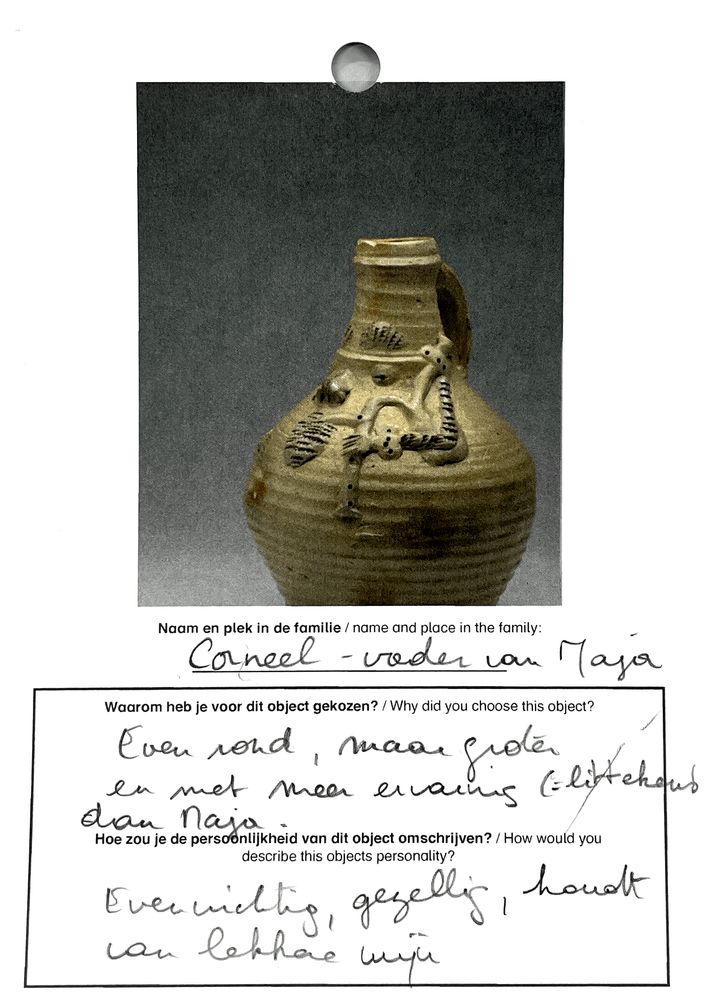 Naam en plek in de familie / name and place in the family:
Corneel - vader van Maja
Waarom heb je voor dit object gekozen? / Why did you choose this object?
Even rond, maar groter
en met meer ervaring (= littekens
dan Maja.
Hoe zou je de persoonlijkheid van dit object omschrijven? / How would you
describe this objects personality?
Evenwichtig, gezellig, houdt
van lekkere wijn